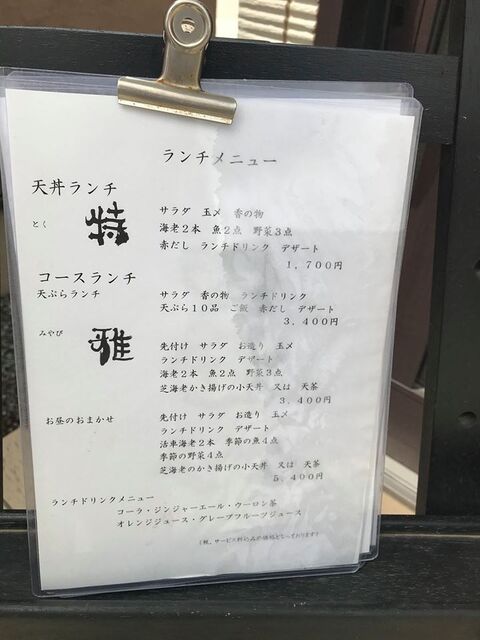 ランチメニュー
天丼ランチ
とく 特 サラダ 玉〆 香の物
海老２本 魚２点 野菜３点
赤だし ランチドリンク デザート
１，７００円
コースランチ
天ぷらランチ サラダ 香の物 ランチドリンク
天ぷら１０品 ご飯 赤だし デザート
３，４００円
みやび 雅 先付け サラダ お造り 玉〆
ランチドリンク デザート
海老２本 魚２点 野菜３点
芝海老かき揚げの小天丼 又は 天茶
３，４００円
お昼のおまかせ 先付け サラダ お造り 玉〆
ランチドリンク デザート
活車海老２本 季節の魚４点
季節の野菜４点
芝海老のかき揚げの小天丼 又は 天茶
５，４００円
ランチドリンクメニュー
コーラ・ジンジャーエール・ウーロン茶
オレンジジュース・グレープフルーツジュース
（税、サービス料込みの価格となっております）